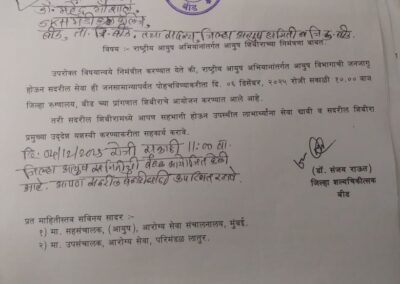 बीड
डॉ. महेंद्र
बीड, ता. जि. बीड. तथा सदस्य, जिल्हा आयुष समिती जि. बीड.
विषय :- राष्ट्रीय आयुष अभियानांतर्गत आयुष शिबीराच्या निमंत्रणा बाबत.
उपरोक्त विषयान्वये निमंत्रीत करण्यात येते की, राष्ट्रीय आयुष अभियानांतर्गत आयुष विभागाची जनजागृती
होऊन सदरील सेवा ही जनसामान्यापर्यंत पोहचविण्याकरीता दि. ०६ डिसेंबर, २०२५ रोजी सकाळी १०.०० वाजता
जिल्हा रुग्णालय, बीड च्या प्रांगणात शिबीराचे आयोजन करण्यात आले आहे.
तरी सदरील शिबीरामध्ये आपण सहभागी होऊन उपस्थीत लाभार्थ्यांना सेवा द्यावी व सदरील शिबीराचा
प्रमुख्या उद्देश यशस्वी करण्याकरीता सहकार्य करावे.
दि: 04/12/2025 रोजी सकाळी 11:00 वा.
जिल्हा आयुष समितीची बैठक आयोजित केली
आहे. आपण सदरील बैठकीसाठी उपस्थित रहावे
(डॉ. संजय राऊत)
जिल्हा शल्यचिकित्सक
बीड
प्रत माहितीस्तव सविनय सादर :-
१) मा. सहसंचालक, (आयुष), आरोग्य सेवा संचालनालय, मुंबई.
२) मा. उपसंचालक, आरोग्य सेवा, परिमंडळ लातुर.